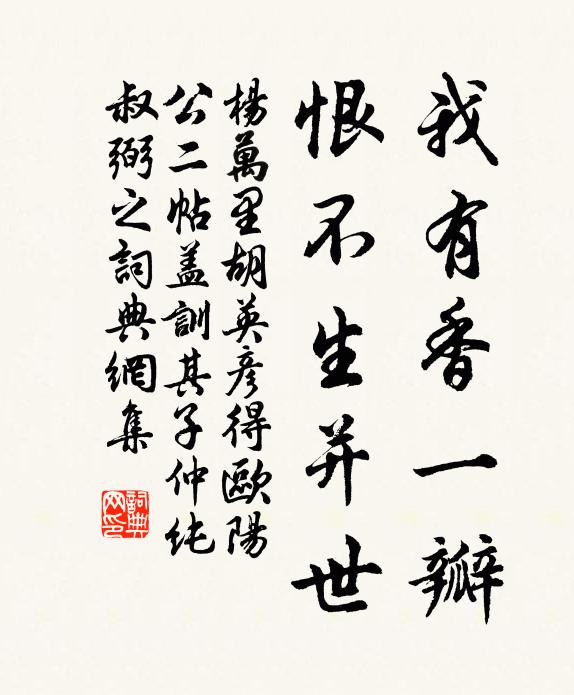 我有香一瓣
恨不生并世
楊萬里胡英彦得歐陽
公二帖蓋訓其子仲純
叔弼之詞典網集
詞典网印